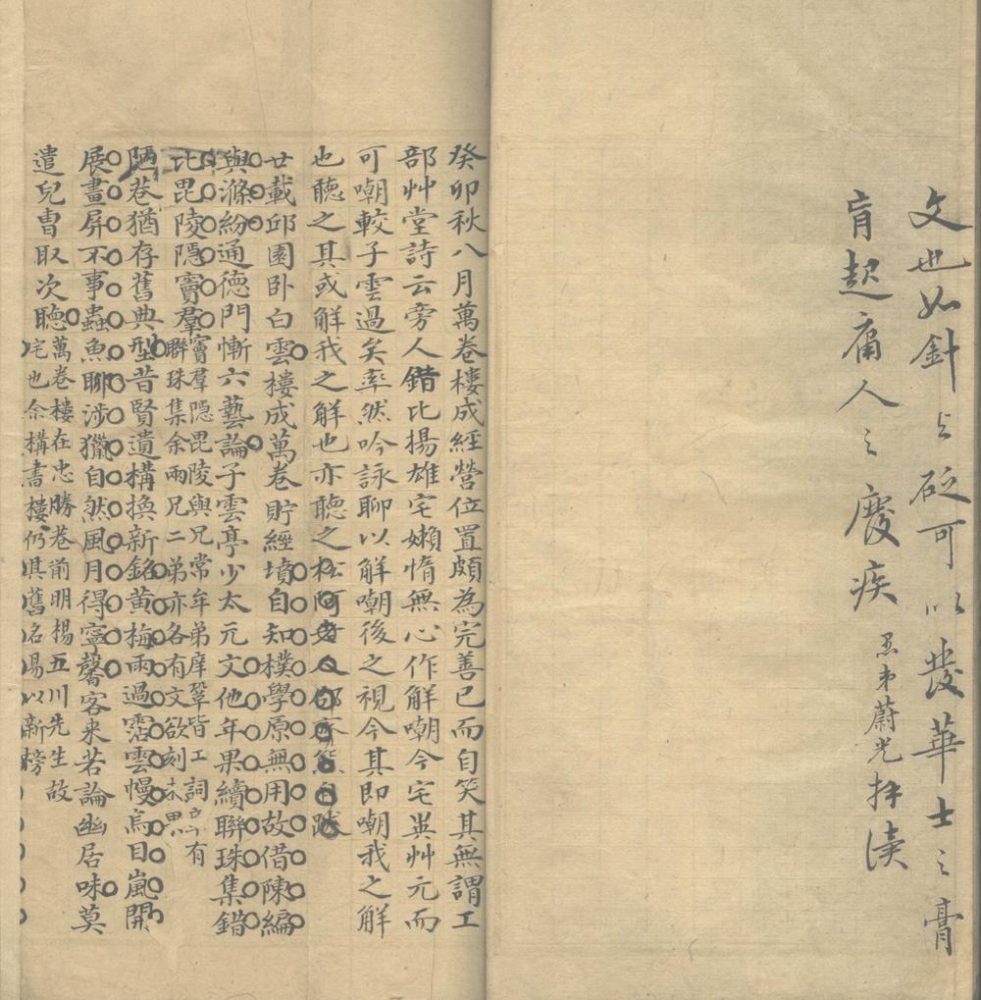 文也如針與砭可以發華士之膏
肓起庸人之廢疾
愚弟蔚光拜讀
癸卯秋八月萬卷樓成經營位置頗為完善已而自笑其無謂工
部艸堂詩云旁人錯比揚雄宅嬾惰無心作解嘲今宅異艸元而
可嘲較子雲過矣率然吟詠聊以解嘲後之視今其即嘲我之解
也聽之其或解我之解也亦聽之松阿老人
廿載邱園臥白雲樓成萬卷貯經墳自知樸學原無用故借陳編
與滌紛通德門慚六藝論子雲亭少太元文他年果續聯珠集錯
比毘陵隱竇羣
竇羣隱毘陵與兄常牟弟庠鞏皆工詞章有
聯珠集余兩兄二弟亦各有文欲刻未果
陋巷猶存舊典型昔賢遺構換新銘黃梅雨過霑雲幔烏目嵐開
展畫屏不事蟲魚聊涉獵自然風月得寧馨客來若論幽居味莫
遣兒曹取次聽
萬卷樓在忠勝巷前明楊五川先生故
宅也余構書樓仍其舊名易以新榜